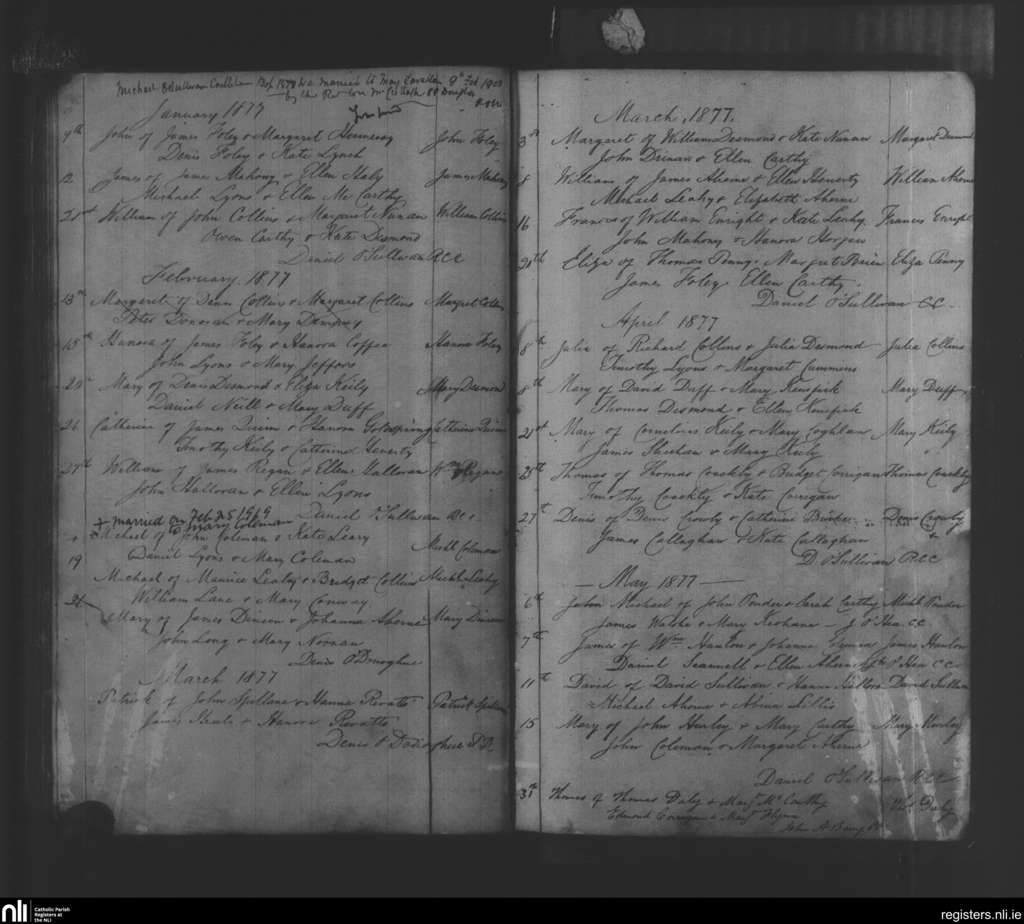 Michael O'Sullivan Bap 1878 was married to May 9th Feb 1903
by the Rev Douglas
January 1877
7th John of James Foley & Margaret Hennessy John Foley
Denis Foley & Kate Lynch
12 James of James Mahony & Ellen Healy James Mahony
Michael Lyons & Ellen Mc Carthy
21st William of John Collins & Margaret Nunan William Collins
Owen Carthy & Kate Desmond
Daniel O'Sullivan RCC
February 1877
13th Margaret of Denis Collins & Margaret Collins Margret Collins
Peter Donovan & Mary Dempsey
15th Hanora of James Foley & Hanora Coffee Hanora Foley
John Lyons & Mary Jeffors
20th Mary of Denis Desmond & Eliza Keily Mary Desmond
Daniel Neill & Mary Duff
26 Catherine of James Quinn & Hanora Goldspring Catherine Quinn
Timothy Keily & Catherine
27th William of James Regan & Ellen Hallivan Wm Regan
John Hallivan & Ellen Lyons
Daniel O'Sullivan RCC
+ married on Feb 25 1919
to Mary Coleman
Michael of John Coleman & Kate Leary Michl Coleman
19 Daniel Lyons & Mary Coleman
Michael of Maurice Leahy & Bridget Collins Michl Leahy
William Lane & Mary Conway
26 Mary of James Dineen & Johanna Aherne Mary Dineen
John Long & Mary Noonan
Denis O'Donoghue
March 1877
Patrick of John Spillane & Hanna Patrick Spillane
James & Hanora
Denis O'Donoghue P.P.
March, 1877.
3rd Margaret of William Desmond & Kate Nunan Margaret Desmond
John Drinan & Ellen Carthy
8 William of James Aherne & Ellen William Aherne
Michael Leahy & Elizabeth Aherne
16 Frances of William Enright & Kate Leahy Frances Enright
John Mahony & Hanora
20th Eliza of Thomas Penny. Margret Brien Eliza Penny
James Foley. Ellen Carthy.
Daniel O'Sullivan CC
April 1877
8th Julia of Richard Collins & Julia Desmond Julia Collins
Timothy Lyons & Margaret Cummins
8th Mary of David Duff & Mary Mary Duff
Thomas Desmond & Ellen
21st Mary of Cornelius Keily & Mary Coghlan Mary Keily
James Sheehan & Mary Keily
25th Thomas of Thomas Coackley & Bridget Corrigan Thomas Coackley
Timothy Coackley & Kate Corrigan
27th Denis of Denis Crowly & Catherine Denis Crowly
James Callaghan & Kate Callaghan
D O'Sullivan RCC
— May 1877 —
6th John Michael of John Ponder & Sarah Carthy Michl Ponder
James Walshe & Mary Keohane — J O'Hea CC
7th James of Wm Hanlon & Johanna James Hanlon
Daniel Scannell & Ellen Aherne J O'Hea CC
11th David of David Sullivan & Hanora David Sullivan
Michael Aherne & Abina Sillis
15 Mary of John Hurley & Mary Carthy Mary Hurley
John Coleman & Margaret Aherne
Daniel O'Sullivan RCC
31st Thomas of Thomas Daly & Mary McCarthy Thos Daly
Edmond Corrigan & Mary Flynn
John A
nli
Catholic Parish
Registers at
the NLI
registers.nli.ie